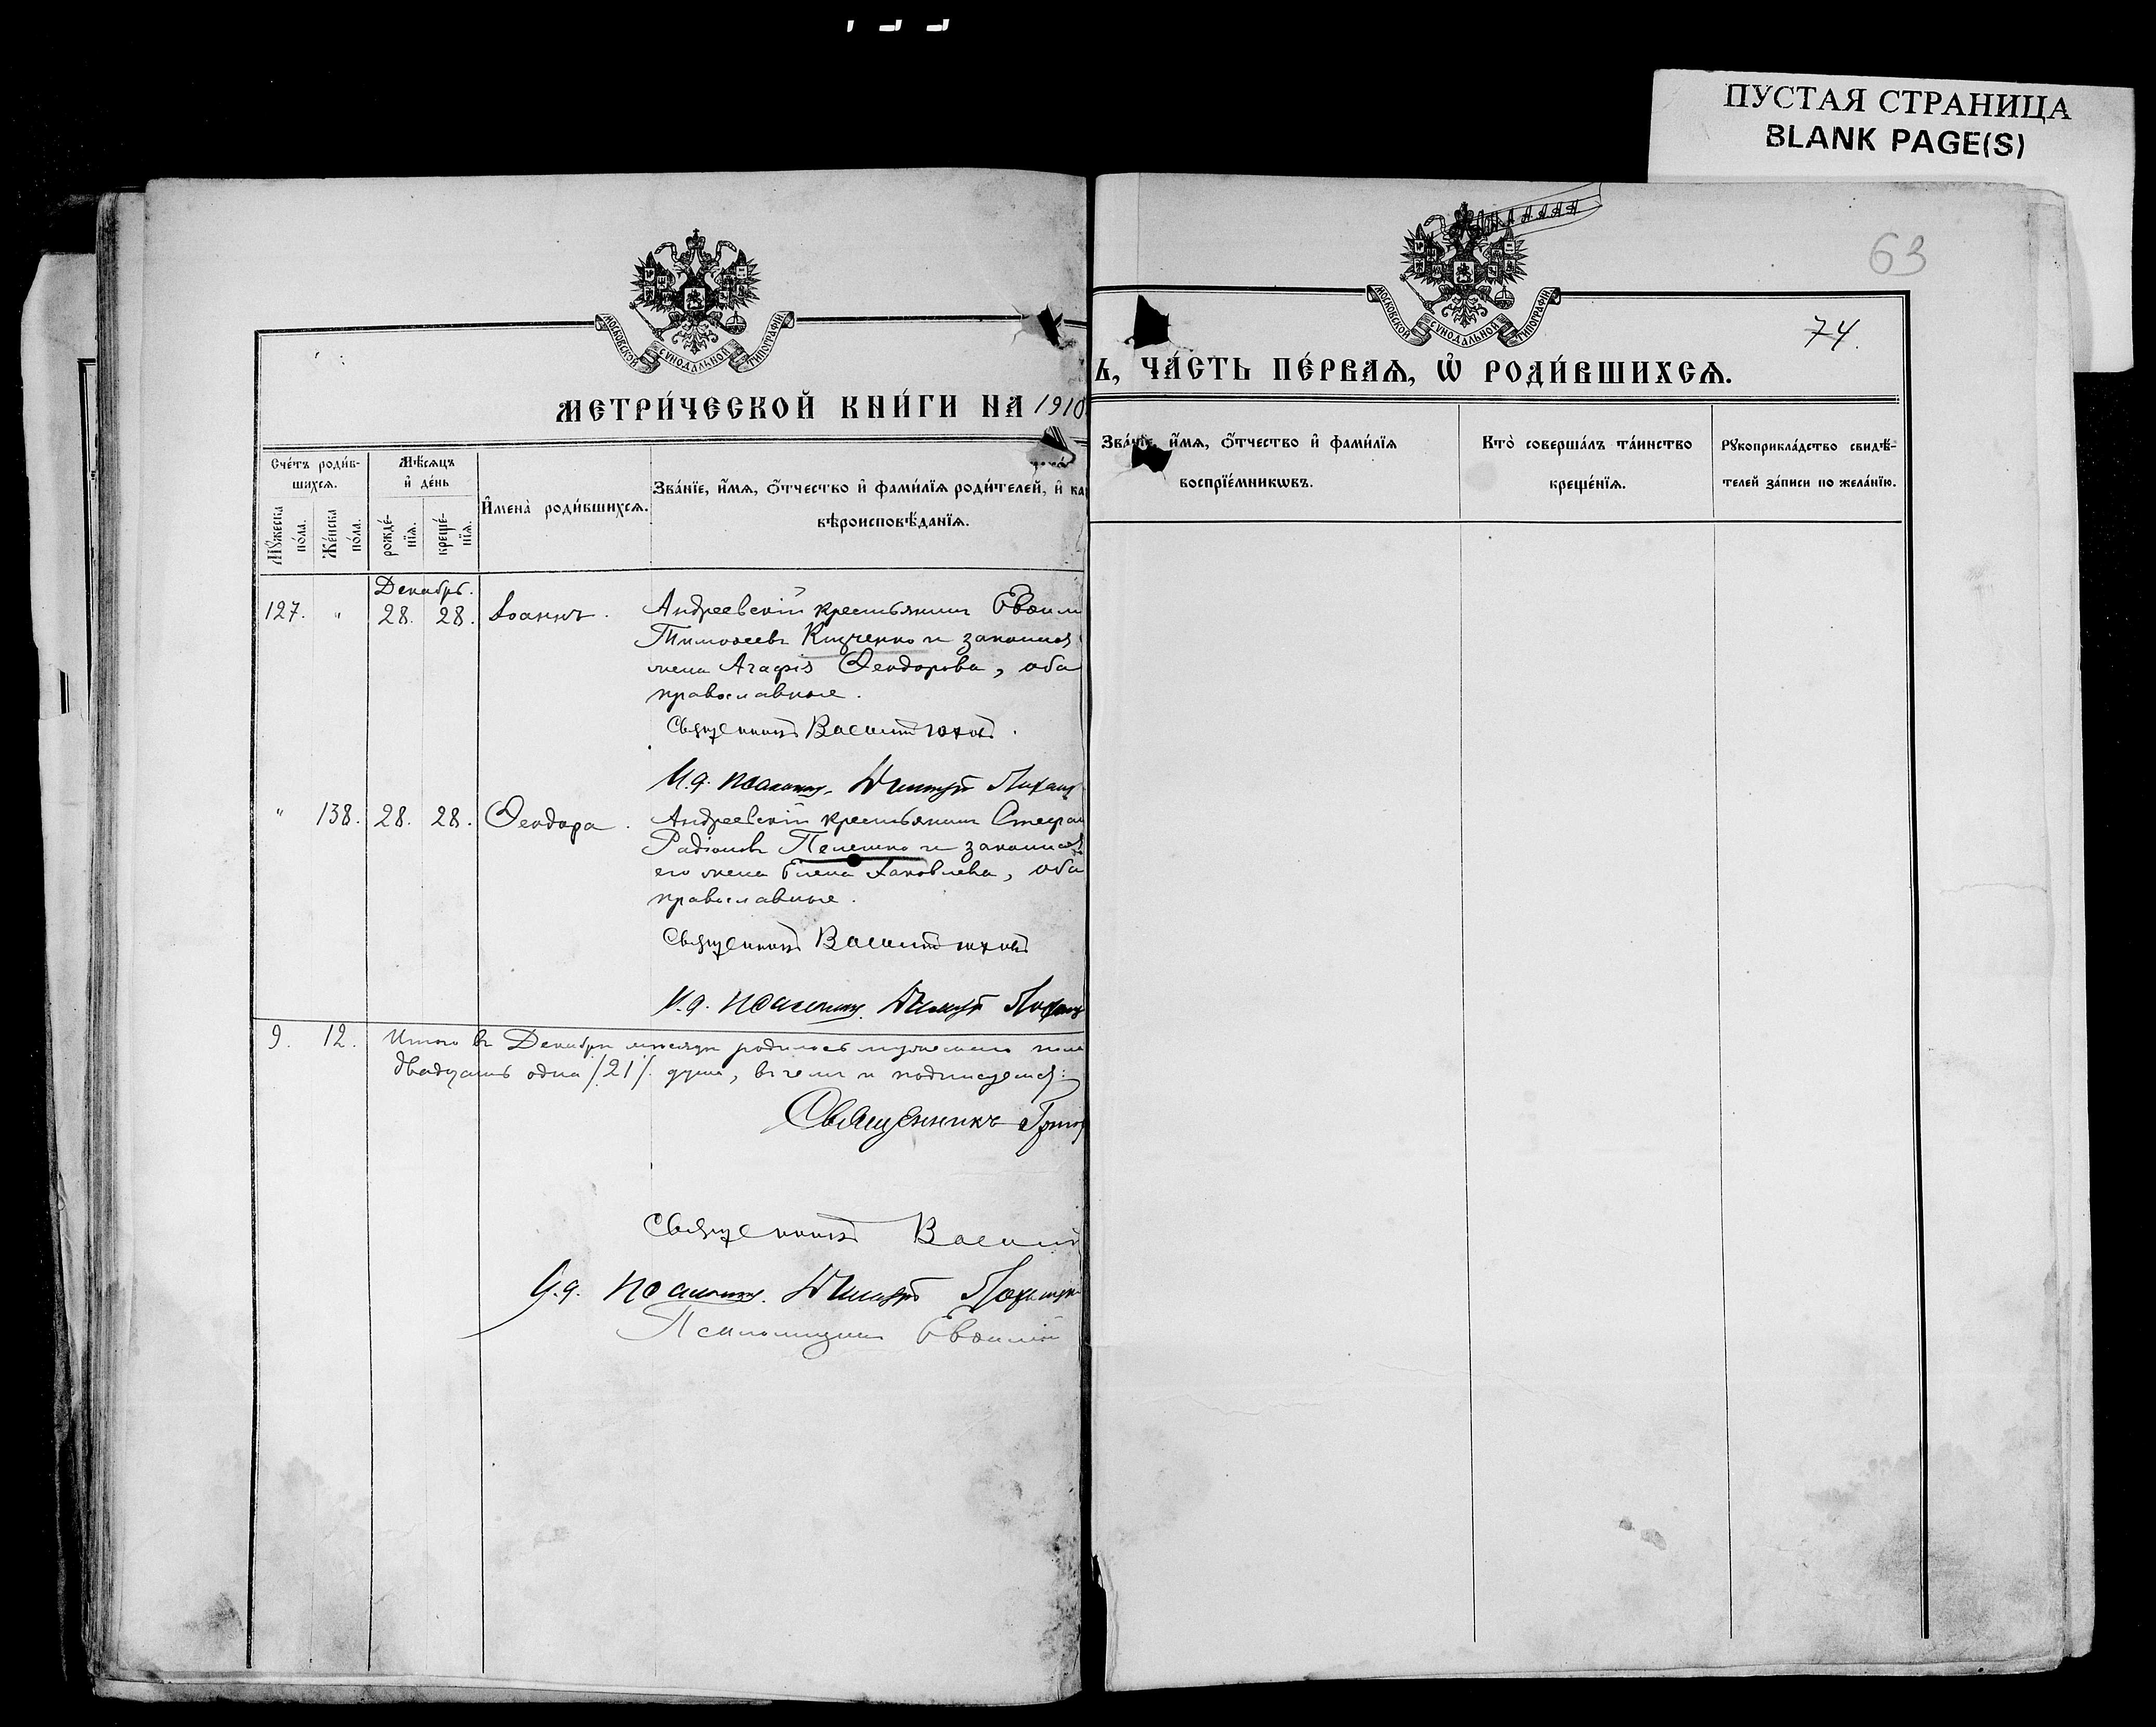 ПУСТАЯ СТРАНИЦА
BLANK PAGE(S)
63
74.
МОСКОВСКОЙ СѴНОДАЛЬНОЙ ТИПОГРАФІИ
МОСКОВСКОЙ СѴНОДАЛЬНОЙ ТИПОГРАФІИ
МЕТРИ́ЧЕСКОЙ КНИ́ГИ НА 1910
Ъ, ЧА́СТЬ ПЕ́РВАѦ, Ѡ҆ РОДИ́ВШИХСѦ.
Сче́тъ роди́в-
шихсѧ.
Мꙋ́жеска по́ла.
Же́нска по́ла.
Мѣ́сѧцъ
и҆ де́нь
рожде́-нїѧ.
креще́-нїѧ.
И҆мена̀ роди́вшихсѧ.
Зва́нїе, и҆́мѧ, ѻ҆́тчество и҆ фами́лїѧ роди́телей, и҆ ка
вѣроисповѣ́данїѧ.
Зва́нїе, и҆́мѧ, ѻ҆́тчество и҆ фами́лїѧ
воспрїе́мникѡвъ.
Кто̀ соверша́лъ та́инство
креще́нїѧ.
Рꙋкоприкла́дство свидѣ́-
телей за́писи по жела́нїю.
Декабрь.
127. " 28. 28. Іоаннъ. Андреевскій крестьянинъ Евѳим
Тимоѳеевъ и законная
жена Агафія Ѳеодорова, оба
православные.
Священникъ Василій
И.д. псаломщ. Димитрій
" 138. 28. 28. Ѳеодора. Андреевскій крестьянинъ Стефан
Радіоновъ Пелешко и законная
его жена Елена Яковлева, оба
православные.
Священникъ Василій
И.д. псаломщ. Димитрій
9. 12. Итого въ Декабрѣ мѣсяцѣ родилось мужескаго пола
двадцать одна /21/ душа, въ чемъ и подписуемся:
Священникъ Григор
Священникъ Василій
И.д. псаломщ. Димитрій
Псаломщикъ Евѳимій